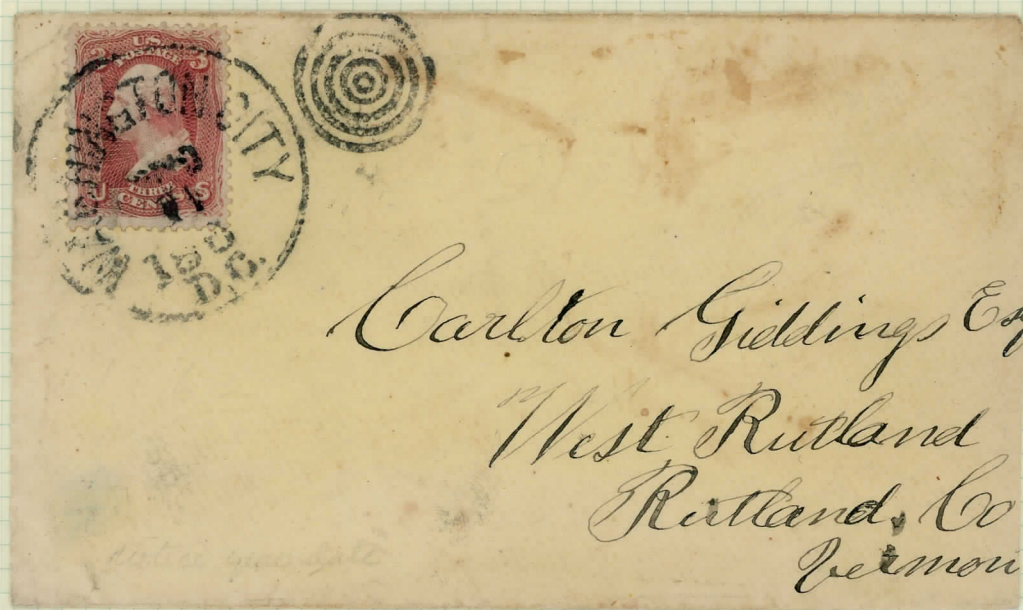 U.S.
POSTAGE
3 3
THREE
CENTS
U S
WASHINGTON CITY
D.C.
Carlton Giddings Esq
West Rutland
Rutland, Co
Vermon